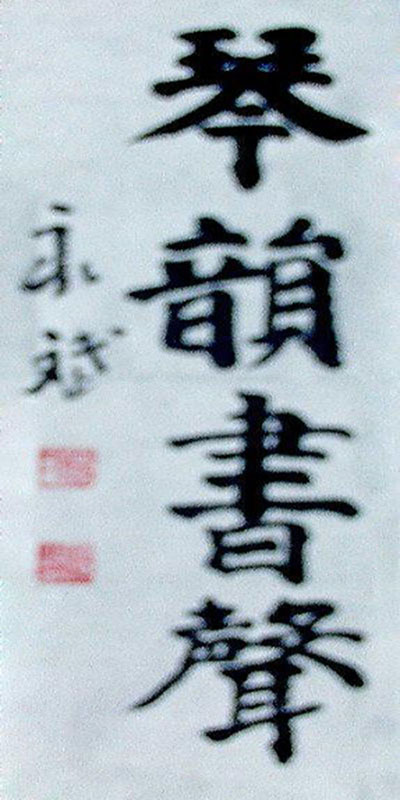 琴韻書聲
永瑆